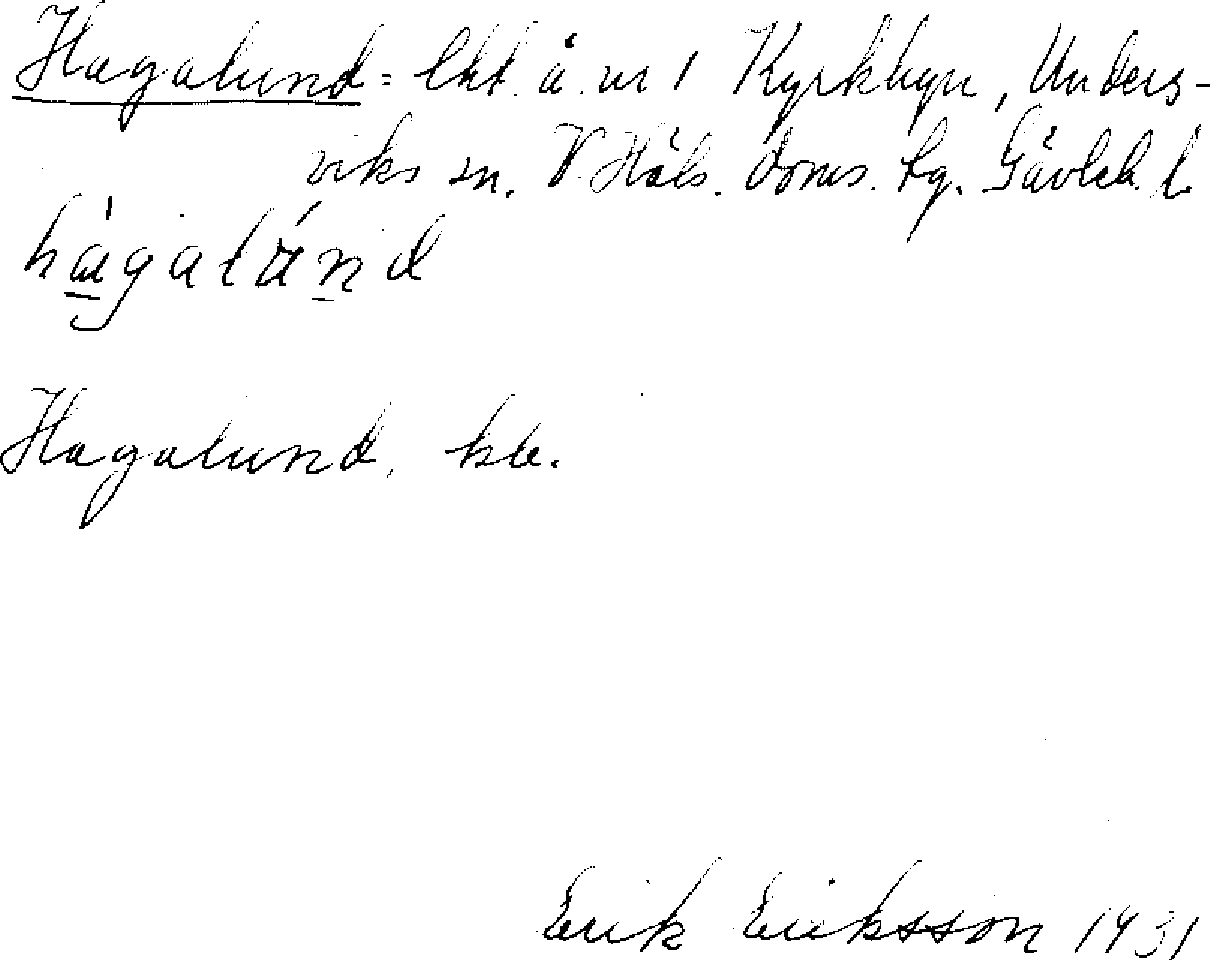 Hagalund = lht. å nr 1 Kyrkbyn, Unders-
viks sn. V. Häls. doms. lg. Gävleb. l.
hàgalánd
Hagalund, kb.
Erik Eriksson 1931